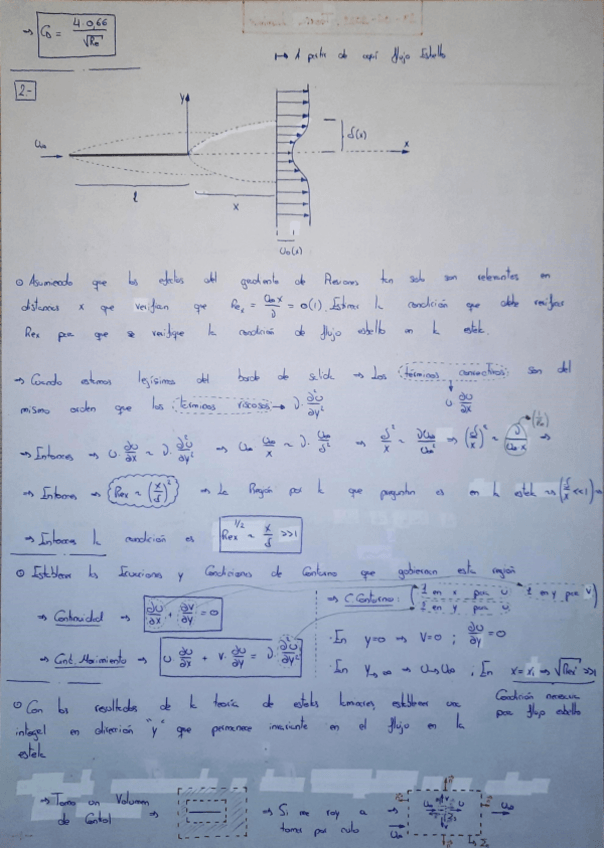 → C_D = 4·0,66 / √Re
↦ A partir de aquí flujo esbelto
2.-
y
U∞
δ(x)
x
l
x
U₀(x)
⊙ Asumiendo que los efectos del gradiente de Presiones tan solo son relevantes en
distancias x que verifian que Re_x = U∞x/ν = O(1). Estimar la condición que debe verificar
Rex para que se verifique la condición de flujo esbelto en la estela.
→ Cuando estamos lejísimos del borde de salida → Los términos convectivos son del
u ∂u/∂x
mismo orden que los términos viscosos → ν·∂²u/∂y²
→ Entonces → u·∂u/∂x ~ ν·∂²u/∂y² → U∞ U∞/x ~ ν·U∞/δ² → δ²/x² ~ ⇒ (δ/x)² ~ ν/(U∞·x) ⇒
→ Entonces → Rex ~ (x/δ)² → La Región por la que preguntan es en la estela → (δ/x <<1) →
→ Entonces la condición es Rex^(1/2) ~ x/δ >>1
⊙ Establecer las Ecuaciones y Condiciones de Contorno que gobiernan esta región
→ Continuidad → ∂u/∂x + ∂v/∂y = 0
⇒ C. Contorno: (1 en x para u
2 en y para u
1 en y para v)
→ Cnt. Movimiento → u·∂u/∂x + v·∂u/∂y = ν·∂²u/∂y²
· En y=0 → V=0 ; ∂u/∂y = 0
· En y→∞ → u→U∞ ; En x=x₁ → √Rex >>1
Condición necesaria
para flujo esbelto
⊙ Con los resultados de la teoría de estelas laminares establecer una
integral en dirección "y" que permanece invariante en el flujo en la
estela
→ Tomo un Volumen
de Control ⇒
⇒ Si me voy a
tomar por culo →
U∞
U∞